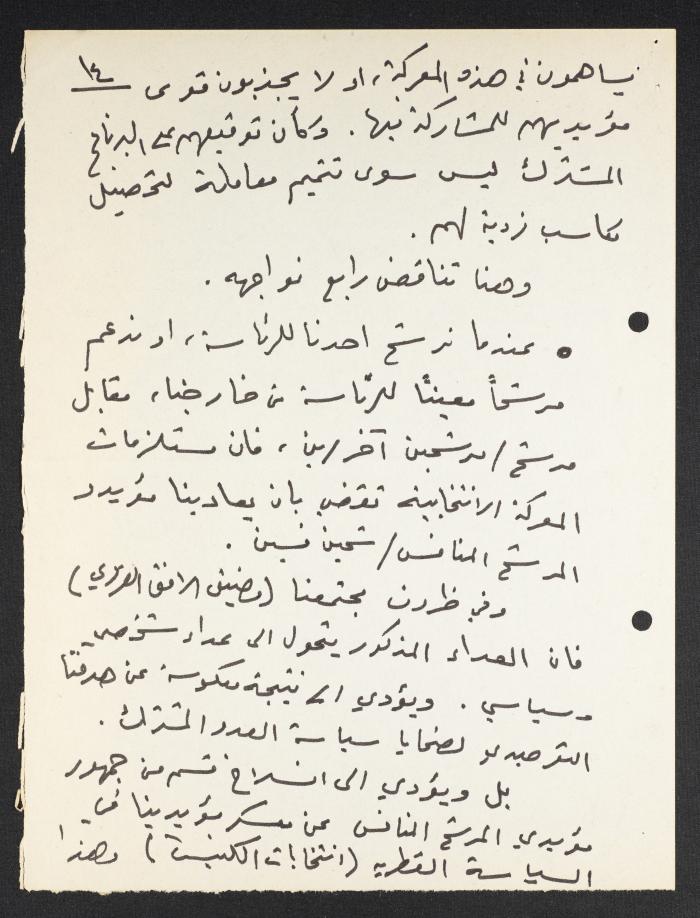 ١٤
يساهمون في هذه المعركة، او لا يجذبون قوى
مؤيديهم للمشاركة بها. وكأن توقيعهم على البرنامج
المشترك ليس سوى تتميم معاملة لتحصيل
مكاسب فردية لهم.
وهنا تناقض رابع نواجهه.
• عندما نرشح احدنا للرئاسة، او ندعم
مرشحاً معيناً للرئاسة من خارجنا، مقابل
مرشح/مرشحين آخر/ين، فان مستلزمات
المعركة الانتخابية تقضي بان يعادينا مؤيدو
المرشح المنافس/شحين فسين.
وفي ظروف مجتمعنا (وضيق الافق العزيزي)
فان العداء المذكور يتحول الى عداء شخصي
وسياسي. ويؤدي الى نتيجة معكوسة عن هدفنا
التوحيدي لضحايا سياسة العدو المشترك.
بل ويؤدي الى انسلاخ قسم من جمهور
مؤيدي المرشح المنافس عن معسكر مؤيدينا في
السياسة القطرية (انتخابات الكنيست) وهذا